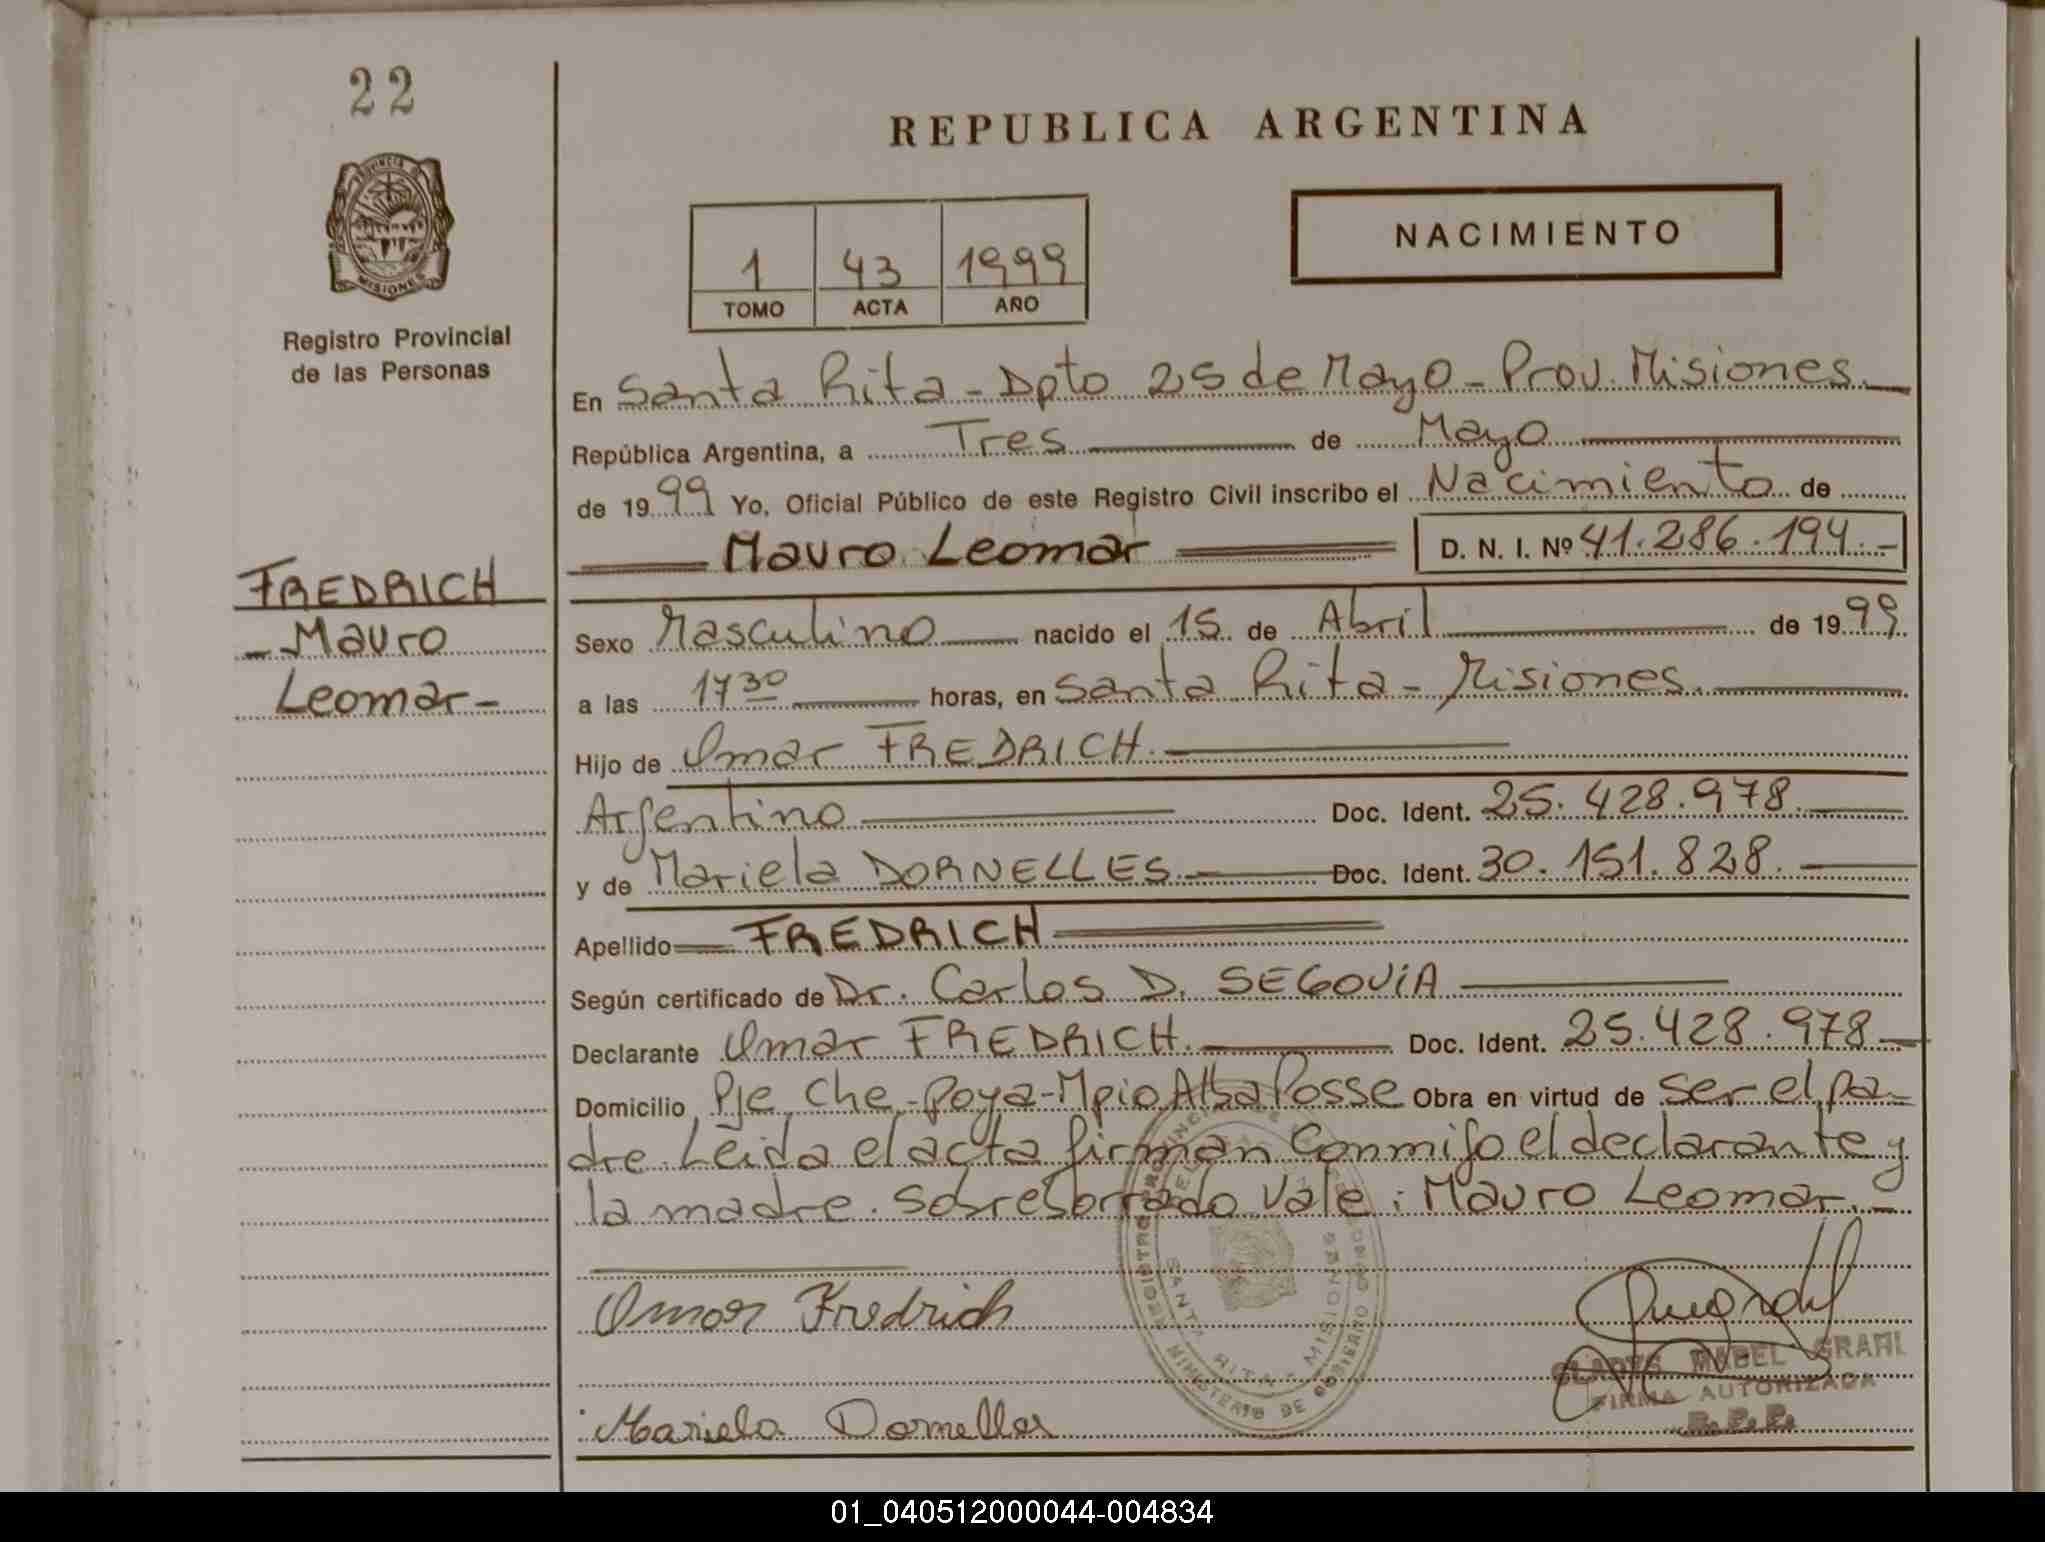 22
PROVINCIA D
MISIONES
Registro Provincial
de las Personas
FREDRICH
- Mauro
Leomar -
REPUBLICA ARGENTINA
1 43 1999
TOMO ACTA AÑO
NACIMIENTO
En Santa Rita - Dpto 25 de Mayo - Prov. Misiones.
República Argentina, a Tres de Mayo
de 1999 Yo, Oficial Público de este Registro Civil inscribo el Nacimiento de
Mauro Leomar D. N. I. Nº 41.286.194.-
Sexo Masculino nacido el 15 de Abril de 1999
a las 17 30 horas, en Santa Rita - Misiones.
Hijo de Omar FREDRICH.
Argentino Doc. Ident. 25.428.978.
y de Mariela DORNELLES. Doc. Ident. 30.151.828.
Apellido FREDRICH
Según certificado de Dr. Carlos D. SEGOVIA
Declarante Omar FREDRICH. Doc. Ident. 25.428.978
Domicilio Pje Che-poya-Mpio Alba Posse Obra en virtud de ser el pa-
dre. Leida el acta firman conmigo el declarante y
la madre. Sobreborrado Vale: Mauro Leomar.-
Omar Fredrich
GLADYS MABEL GRAHL
FIRMA AUTORIZADA
R. P. P.
Mariela Dornelles
SANTA RITA - MISIONES
MINISTERIO DE GOBIERNO
01_040512000044-004834